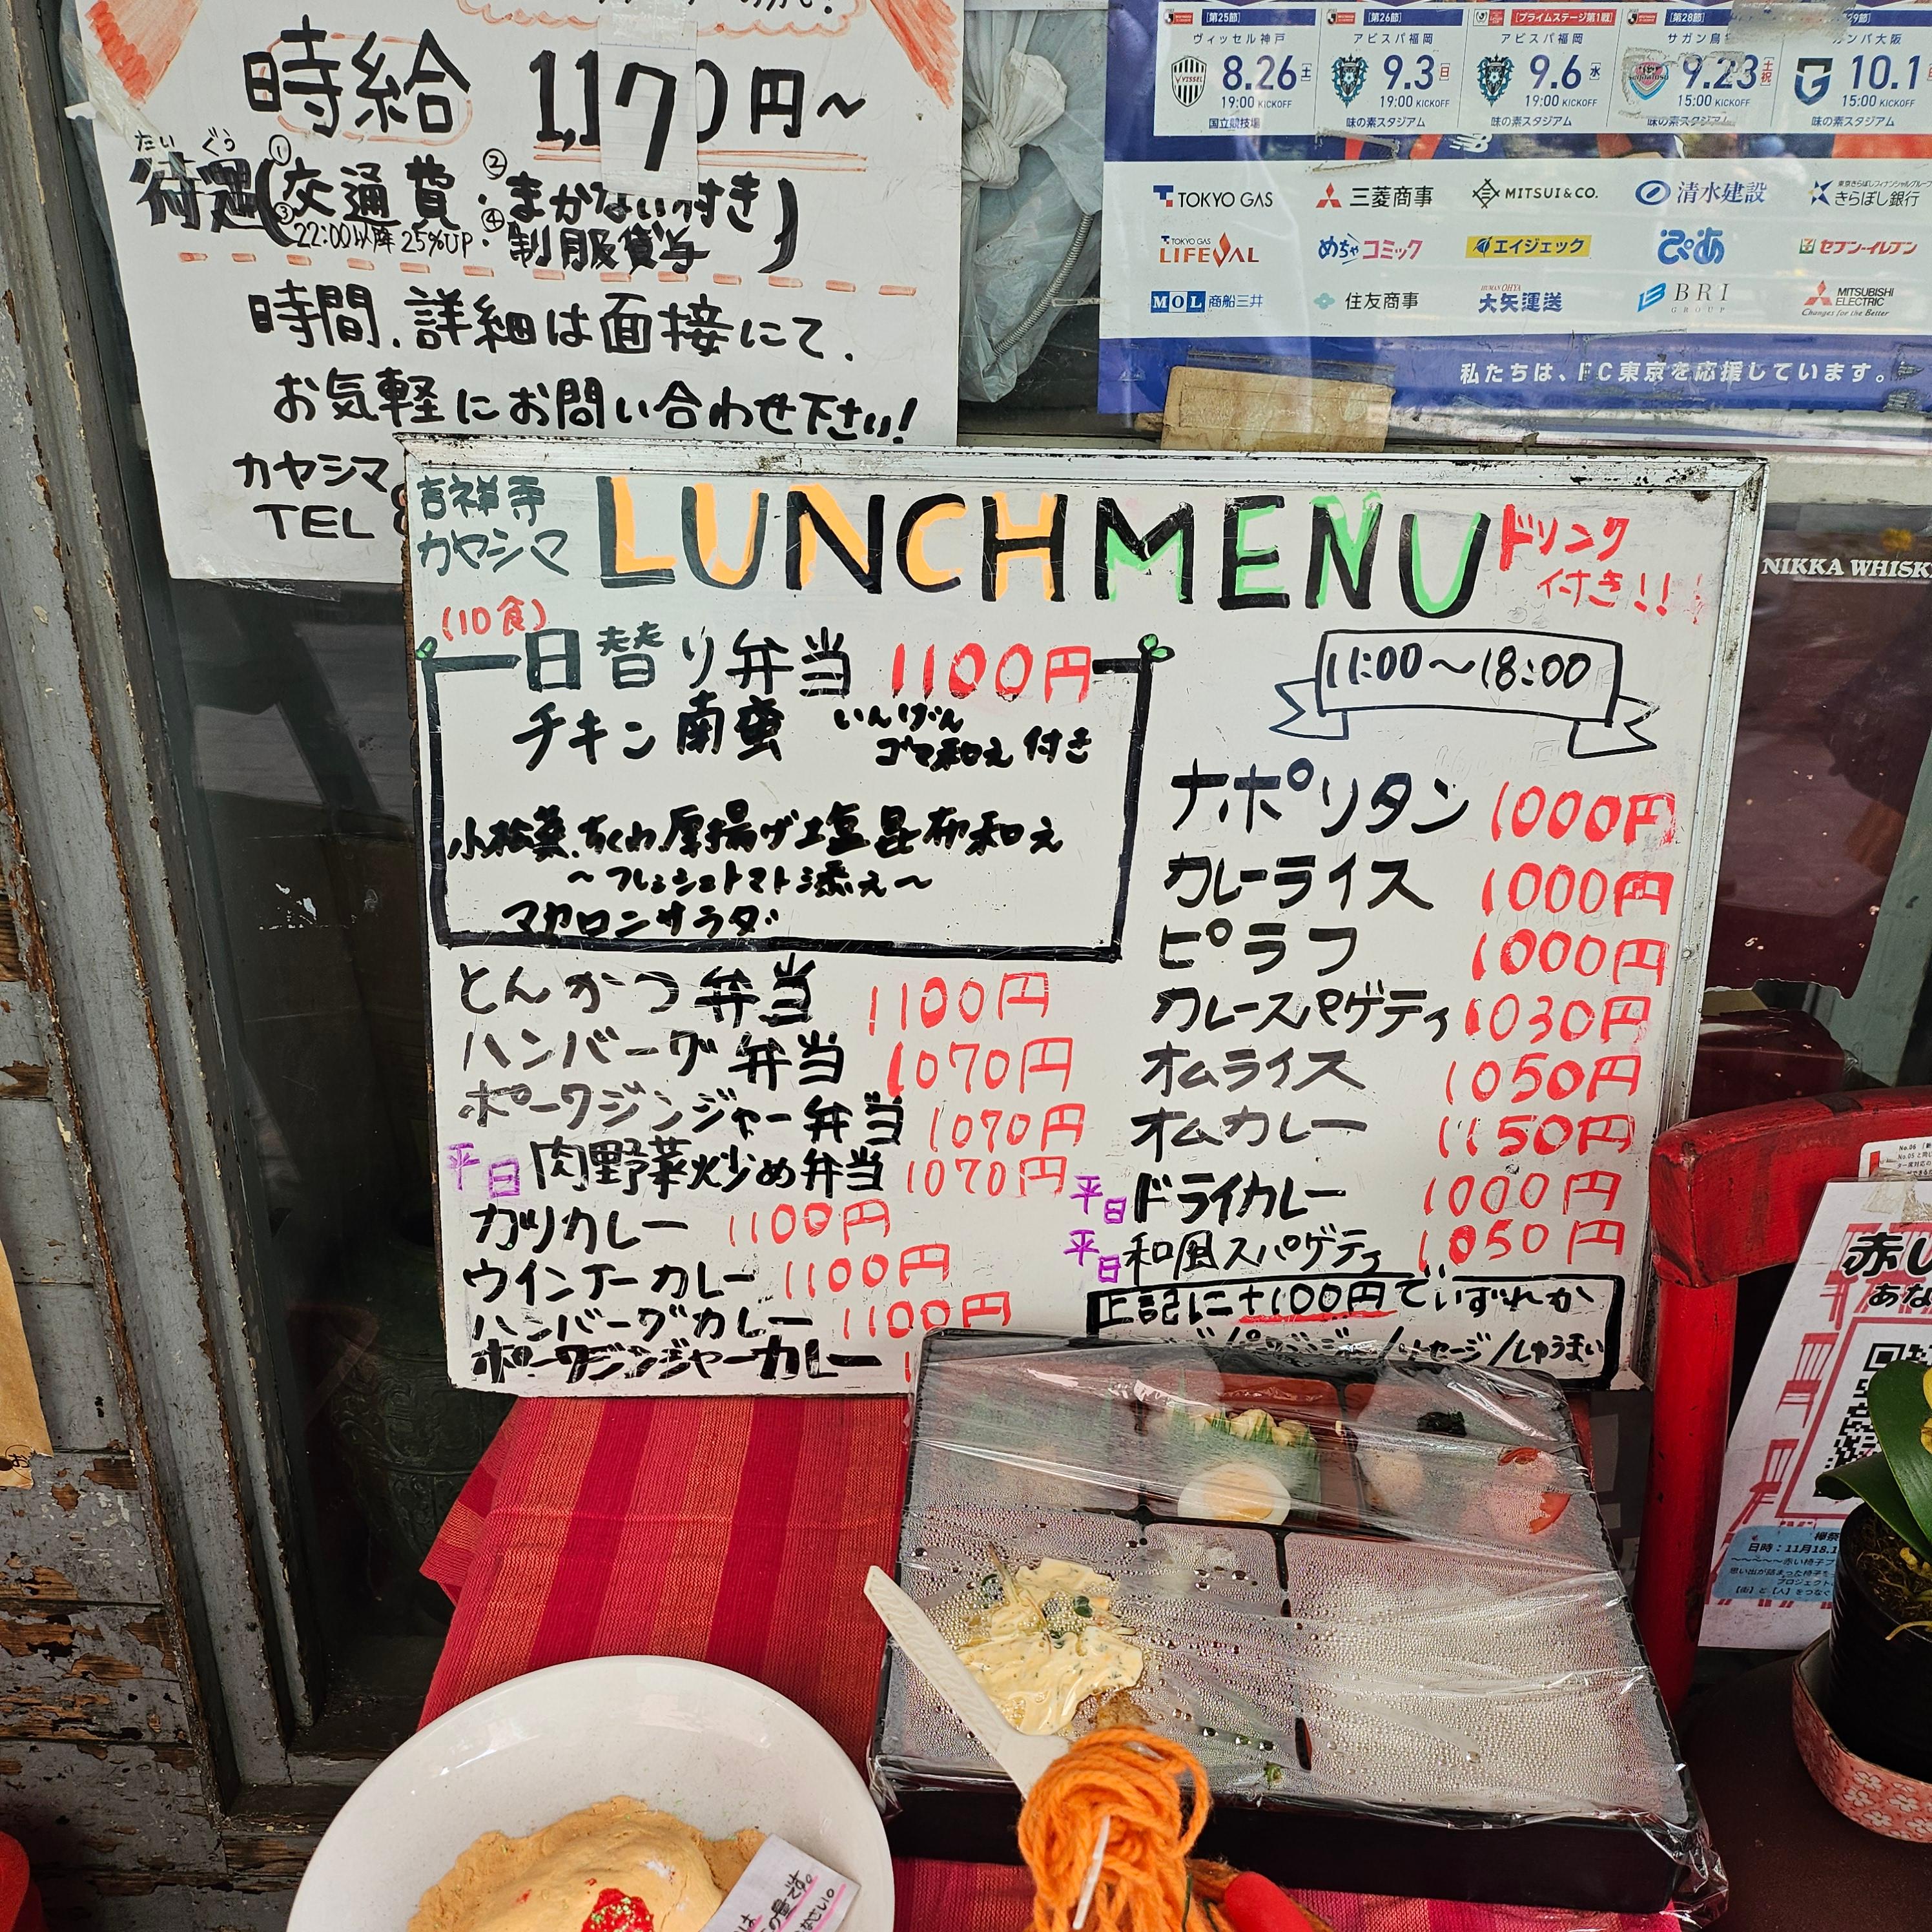 時給 1,170円~
たいぐう
待遇(①交通費・②まかない付き
③22:00以降25%UP・④制服貸与)
時間、詳細は面接にて、
お気軽にお問い合わせ下さい!
カヤシマ
TEL
[第25節]
ヴィッセル神戸
8.26 土
19:00 KICKOFF
国立競技場
[第26節]
アビスパ福岡
9.3 日
19:00 KICKOFF
味の素スタジアム
[プライムステージ第1戦]
アビスパ福岡
9.6 水
19:00 KICKOFF
味の素スタジアム
[第28節]
サガン鳥
9.23 土祝
15:00 KICKOFF
味の素スタジアム
29節]
ガンバ大阪
10.1
15:00 KICKOFF
味の素スタジアム
TOKYO GAS 三菱商事 MITSUI&CO. 清水建設 きらぼし銀行
TOKYO GAS LIFEVAL めちゃコミック エイジェック ぴあ セブン-イレブン
MOL 商船三井 住友商事 大矢運送 BRI GROUP MITSUBISHI ELECTRIC Changes for the Better
私たちは、FC東京を応援しています。
NIKKA WHISK
吉祥寺
カヤシマ
LUNCH MENU
ドリンク
付き!!
(10食)
日替り弁当 1100円
チキン南蛮 いんげん
ゴマ和え 付き
小松菜、ちくわ、厚揚げ塩昆布和え
~フレッシュトマト添え~
マカロニサラダ
とんかつ弁当 1100円
ハンバーグ弁当 1070円
ポークジンジャー弁当 1070円
平日 肉野菜炒め弁当 1070円
カツカレー 1100円
ウインナーカレー 1100円
ハンバーグカレー 1100円
ポークジンジャーカレー
11:00~18:00
ナポリタン 1000円
カレーライス 1000円
ピラフ 1000円
カレースパゲティ 1030円
オムライス 1050円
オムカレー 1150円
平日 ドライカレー 1000円
平日 和風スパゲティ 1050円
上記に+100円でいずれか
/しゅうまい
赤い
あな
日時:11月18.1